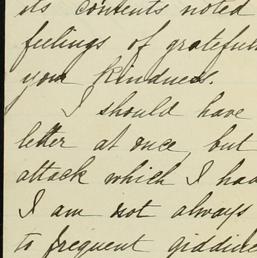 its contents noted
feelings of gratefu
your kindness.
I should have
letter at once, but
attack which I had
I am not always
to frequent giddine